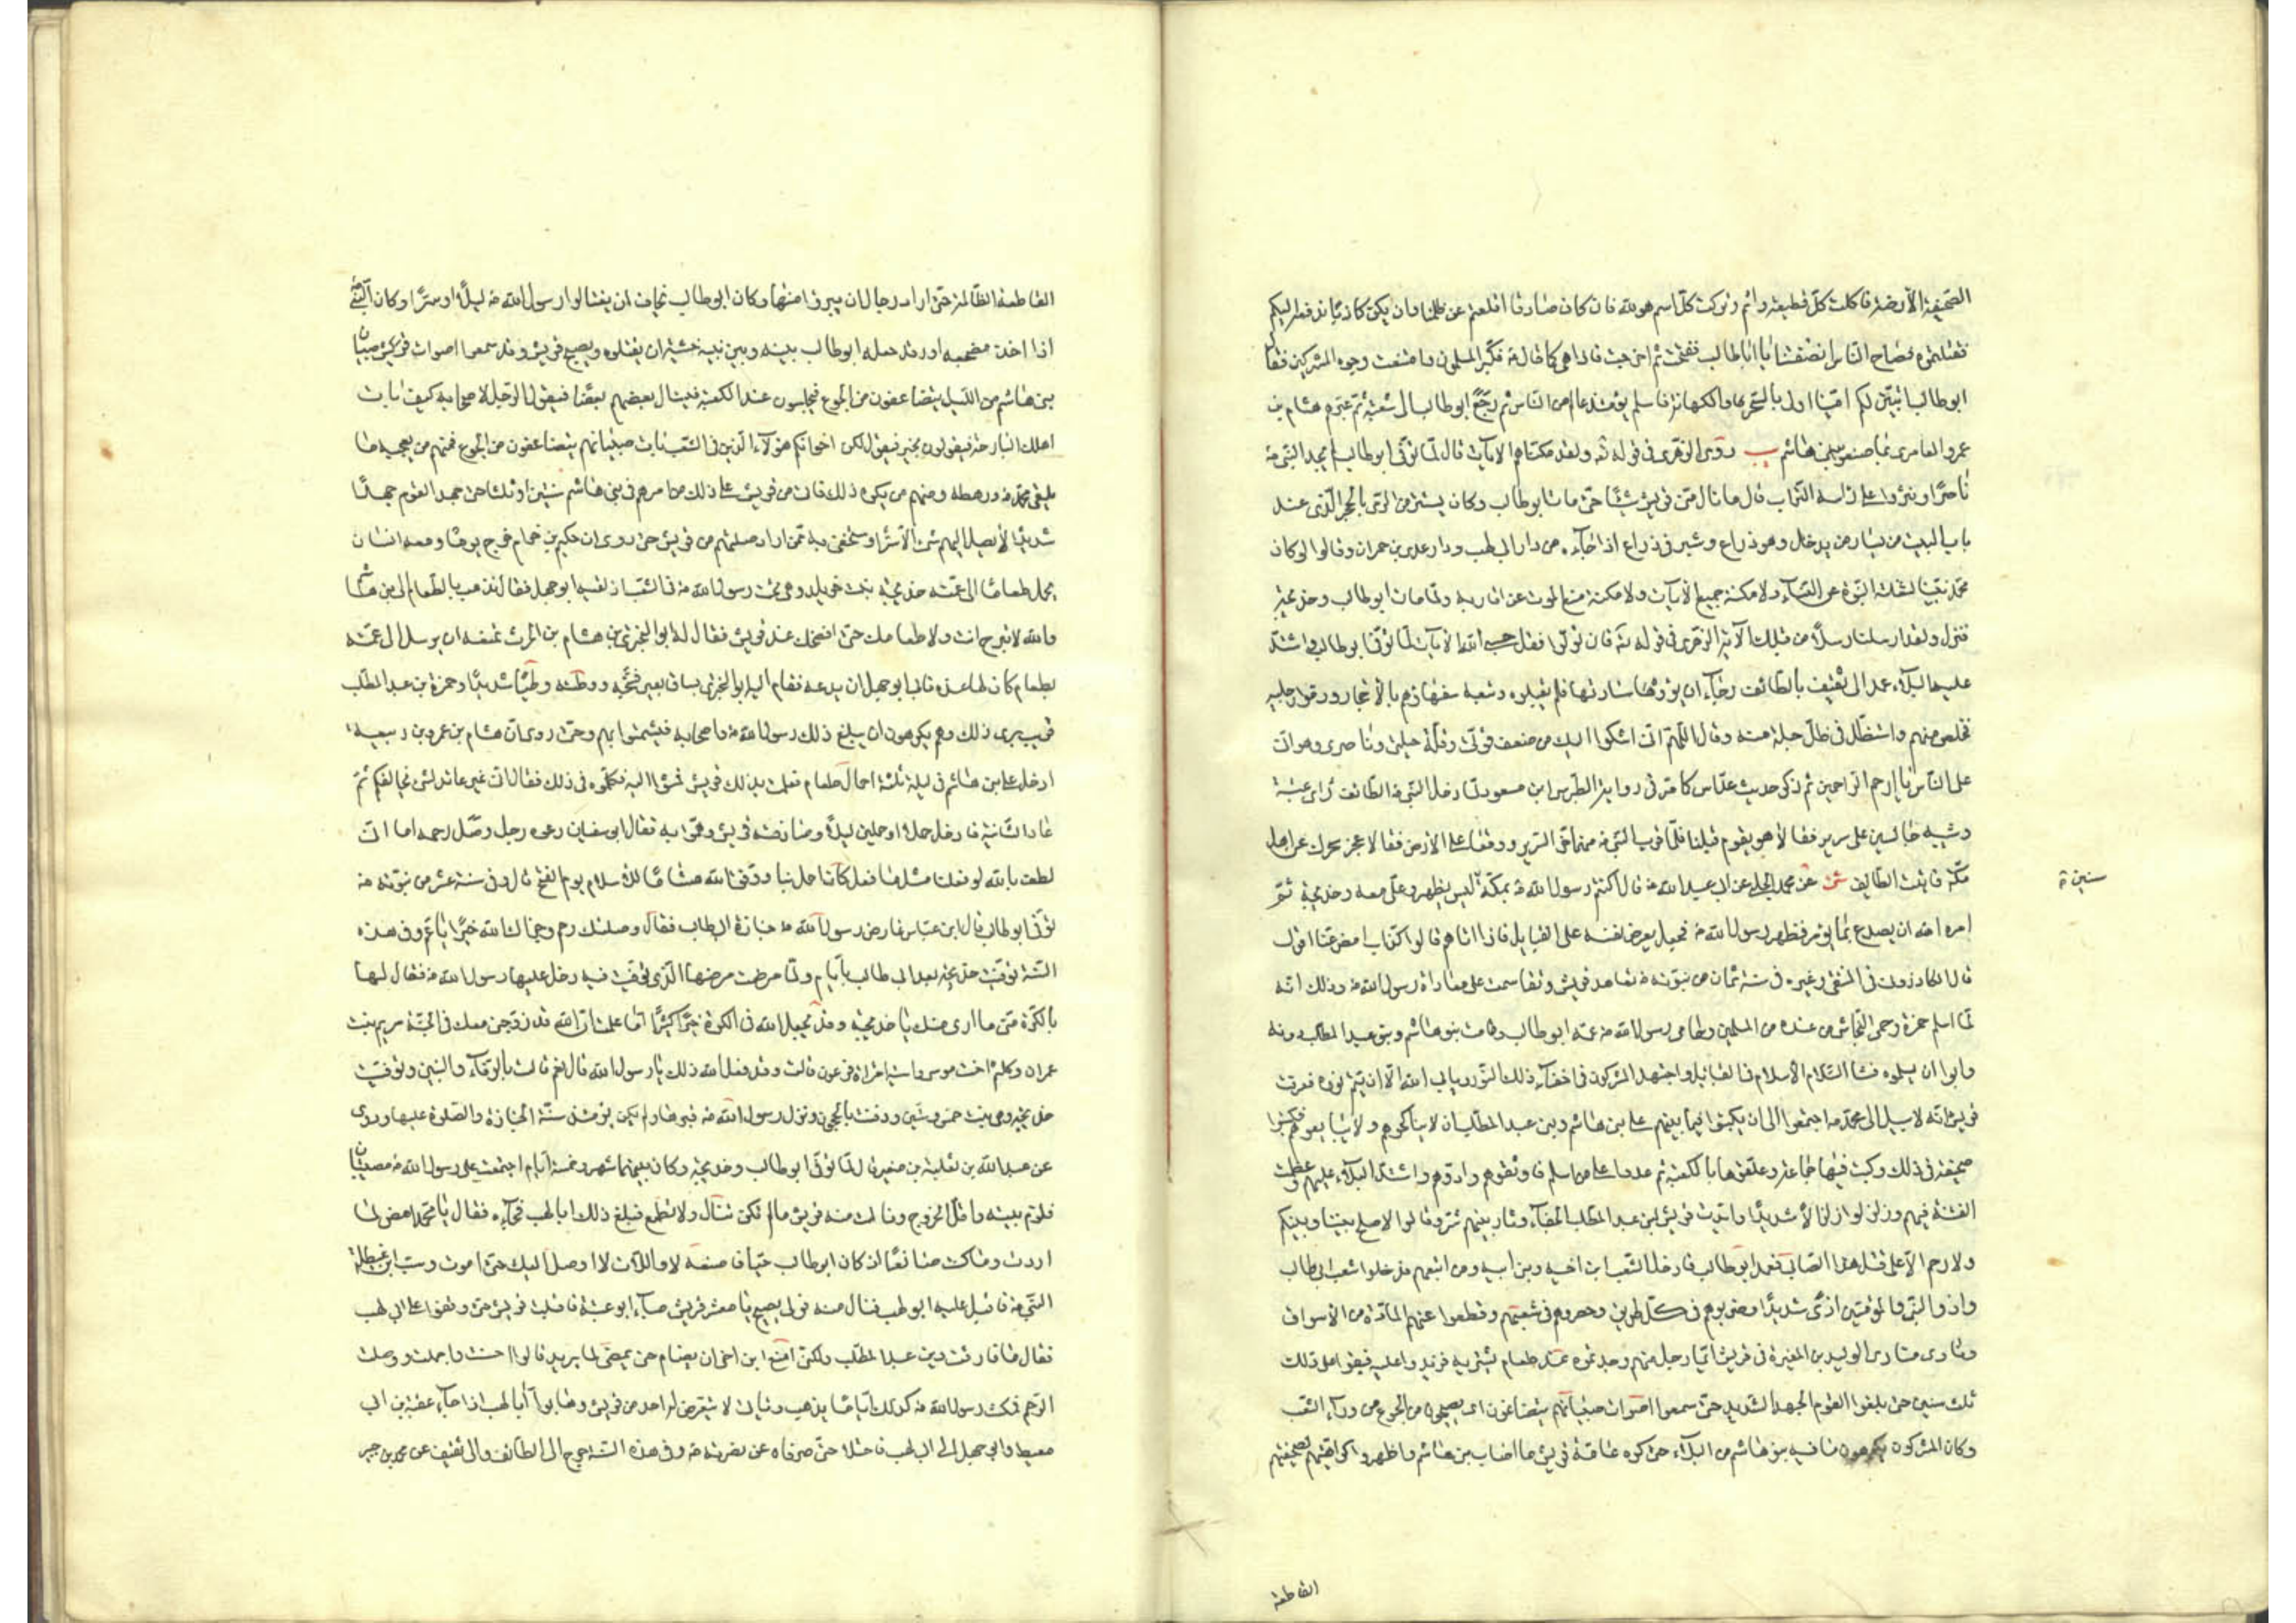 الصحيفة الأرضة فاكلت كلّ قطيعة واثم وتركت كلّ اسم هو لله فان كان صادقا اقلعتم عن ظلمنا وان يكن كاذبا ندفعه اليكم
فقتلتموه فصاح الناس انصفتنا يا اباطالب ففتحت ثم اخرجت فاذا هي كما قال ص فكبّر المسلمون وامتقعت وجوه المشركين فقال
ابوطالب اتبيّن لكم اينا اولى بالسحر والكهانة فاسلم يومئذ عالم من الناس ثم رجع ابوطالب الى شعبه ثم عيّرهم هشام بن
عمرو العامري بما صنعوا ببني هاشم ب روى الزهري في قوله تعالى ولقد مكناهم الآيات قال لما توفي ابوطالب لم يجد النبي ص
ناصرا ونثروا على راسه التراب قال ما نال مني قريش شيئا حتى مات ابوطالب وكان يستتر من الرمي بالحجر الذي عند
باب البيت من يسار من يدخل وهو ذراع وشبر في ذراع اذا جاءه من دار ابي لهب ودار عدي بن حمران وقالوا لو كان
محمد نبيّا لشغلته النبوة عن النساء ولا مكنه جميع الآيات ولا مكنه منع الموت عن اقاربه ولما مات ابوطالب وخديجة
فنزل ولقد ارسلنا رسلا من قبلك الآية الزهري في قوله تعالى فان تولوا فقل حسبي الله الآيات لما توفي ابوطالب واشتد
عليه البلاء عمد الى ثقيف بالطائف رجاء ان يؤووه سادتها فلم يقبلوه وتبعه سفهاؤهم بالاحجار ودموا رجليه
فخلص منهم واستظل في ظل حبلة منه وقال اللهم اني اشكو اليك من ضعف قوتي وقلة حيلتي وناصري وهواني
على الناس يا ارحم الراحمين ثم ذكر حديث عداس كما مر في رواية الطبرسي ابن مسعود لما دخل النبي ص الطائف راى عتبة
وشيبة جالسين على سرير فقالا هو يقوم قبلنا فلما قرب النبي ص منهما خر السرير ووقعا على الارض فقالا عجز سحرك عن اهل
مكة فاتيت الطائف شى عن محمد الحلبي عن ابي عبد الله ع قال اكتتم رسول الله ص بمكة ليس يظهر وعلي معه وخديجة ثم
سنين ة
امره الله ان يصدع بما يؤمر فظهر رسول الله ص فجعل يعرض نفسه على القبايل فاذا اتاهم قالوا كذاب امض عنا اقول
قال الكازروني في المنتقى وغيره في سنة ثمان من نبوته ص تعاهد قريش وتقاسمت على معاداة رسول الله ص وذلك انه
لما اسلم حمزة وحمى النجاشي من عنده من المسلمين وحامى رسول الله ص عمه ابوطالب وقامت بنو هاشم وبنو عبد المطلب دونه
وابوا ان يسلموه فشا الاسلام في القبايل واجتهد المشركون في اخفاء ذلك النور ويابى الله الا ان يتم نوره فعرفت
قريش انه لا سبيل الى محمد ص اجتمعوا الى ان يكتبوا فيما بينهم على بني هاشم وبني عبد المطلب ان لا يناكحوهم ولا يبايعوهم فكتبوا
صحيفة في ذلك وكتب فيها جماعة وعلقوها بالكعبة ثم عدوا على من اسلم فاوثقوهم واذوهم واشتد البلاء عليهم وعظمت
الفتنة فيهم وزلزلوا زلزالا شديدا وابدت قريش لبني عبد المطلب الجفاء وثار بينهم شر وقالوا لا صلح بيننا وبينكم
ولا رحم الا على قتل هذا الصابي فعمد ابوطالب فادخل الشعب ابن اخيه وبني ابيه ومن اتبعهم فدخلوا شعب ابي طالب
واذوا النبي والمؤمنين اذى شديدا وضربوهم في كل طريق وحصروهم في شعبهم وقطعوا عنهم المادة من الاسواق
ونادى منادي الوليد بن المغيرة في قريش ايما رجل منهم وجدتموه عند طعام يشتريه فزيدوا عليه فبقوا على ذلك
ثلث سنين حتى بلغوا القوم الجهد الشديد حتى سمعوا اصوات صبيانهم يتضاغون اى يصيحون من الجوع من وراء الشعب
وكان المشركون يكرهون ما فيه بنو هاشم من البلاء حتى كره عامة قريش ما اصاب بني هاشم واظهروا كراهيتهم لصحيفتهم
القاطعة
القاطعة الظالمة حتى اراد رجال ان يبرؤا منها وكان ابوطالب يخاف ان يغتالوا رسول الله ص ليلا او سرا وكان النبي ص
اذا اخذ مضجعه او رقد جعله ابوطالب بينه وبين بنيه خشية ان يقتلوه ويصبح قريش وقد سمعوا اصوات صبيان
بني هاشم من الليل يتضاغون من الجوع فيجلسون عند الكعبة فيسال بعضهم بعضا فيقول الرجل لاصحابه كيف بات
اهلك البارحة فيقولون بخير فيقول لكن اخوانكم هؤلاء الذين في الشعب بات صبيانهم يتضاغون من الجوع فمنهم من يعجبه ما
يلقى محمد ص ورهطه ومنهم من يكره ذلك فاتى من قريش على ذلك من امرهم في بني هاشم سنتين او ثلثا حتى جهد القوم جهدا
شديدا لا يصل اليهم شئ الا سرا ومستخفى به ممن اراد صلتهم من قريش حتى روى ان حكيم بن حزام خرج يوما ومعه انسان
يحمل طعاما الى عمته خديجة بنت خويلد وهي تحت رسول الله ص في الشعب اذ لقيه ابوجهل فقال تذهب بالطعام الى بني هاشم
والله لا تبرح انت ولا طعامك حتى افضحك عند قريش فقال له ابو البختري بن هشام بن الحرث تمنعه ان يرسل الى عمته
بطعام كان لها عنده فابى ابوجهل ان يدعه فقام اليه ابو البختري بساق بعير فشجه ووطئه وطئا شديدا وحمزة بن عبد المطلب
قريب يرى ذلك وهم يكرهون ان يبلغ ذلك رسول الله ص واصحابه فيشمتوا بهم وحتى روى ان هشام بن عمرو بن ربيعة
ادخل على بني هاشم في ليلة ثلثة احمال طعام فعلمت بذلك قريش فمشوا اليه فكلموه في ذلك فقال اني غير عائد لشئ يخالفكم ثم
عاد الثانية فادخل حملا او حملين ليلا وصادفته قريش وهموا به فقال ابو سفيان دعوه رجل وصل رحمه اما اني
احلف بالله لو فعلنا مثل ما فعل كان اجمل بنا ووفق الله هشاما للاسلام يوم الفتح قال وفي سنة عشر من نبوته ص
توفي ابوطالب قال ابن عباس عارض رسول الله ص جنازة ابي طالب فقال وصلتك رحم وجزاك الله خيرا يا عم وفي هذه
السنة توفيت خديجة بعد ابي طالب بايام ولما مرضت مرضها الذي توفيت فيه دخل عليها رسول الله ص فقال لها
بالكره مني ما ارى منك يا خديجة وقد يجعل الله في الكره خيرا كثيرا اما علمت ان الله قد زوجني معك في الجنة مريم بنت
عمران وكلثم اخت موسى واسية امراة فرعون قالت وقد فعل الله ذلك يا رسول الله قال نعم قالت بالرفاء والبنين وتوفيت
خديجة وهي بنت خمس وستين ودفنت بالحجون ونزل رسول الله ص قبرها ولم يكن يومئذ سنة الجنازة والصلوة عليها وروى
عن عبد الله بن ثعلبة بن صغير قال لما توفي ابوطالب وخديجة وكان بينهما شهر وخمسة ايام اجتمعت على رسول الله ص مصيبتان
فلزم بيته واقل الخروج ونالت منه قريش ما لم تكن تنال ولا تطمع فبلغ ذلك ابا لهب فجاءه فقال يا محمد امض لما
اردت وما كنت صانعا اذ كان ابوطالب حيا فاصنعه لا واللات لا اوصل اليك حتى اموت وسب ابن غيطلة
النبي ص فاقبل عليه ابو لهب فنال منه فولى يصيح يا معشر قريش صبا ابو عتبة فاقبلت قريش حتى وقفوا على ابي لهب
فقال ما فارقت دين عبد المطلب ولكن امنع ابن اخي ان يضام حتى يمضي لما يريد قالوا احسنت واجملت ووصلت
الرحم فمكث رسول الله ص كذلك اياما يذهب وياتي لا يتعرض له احد من قريش وهابوا ابا لهب اذ جاء عقبة بن ابي
معيط وابوجهل الى ابي لهب فاحتالا حتى صرفاه عن نصرته ص وفي هذه السنة خرج الى الطائف والى ثقيف عن محمد بن جبير